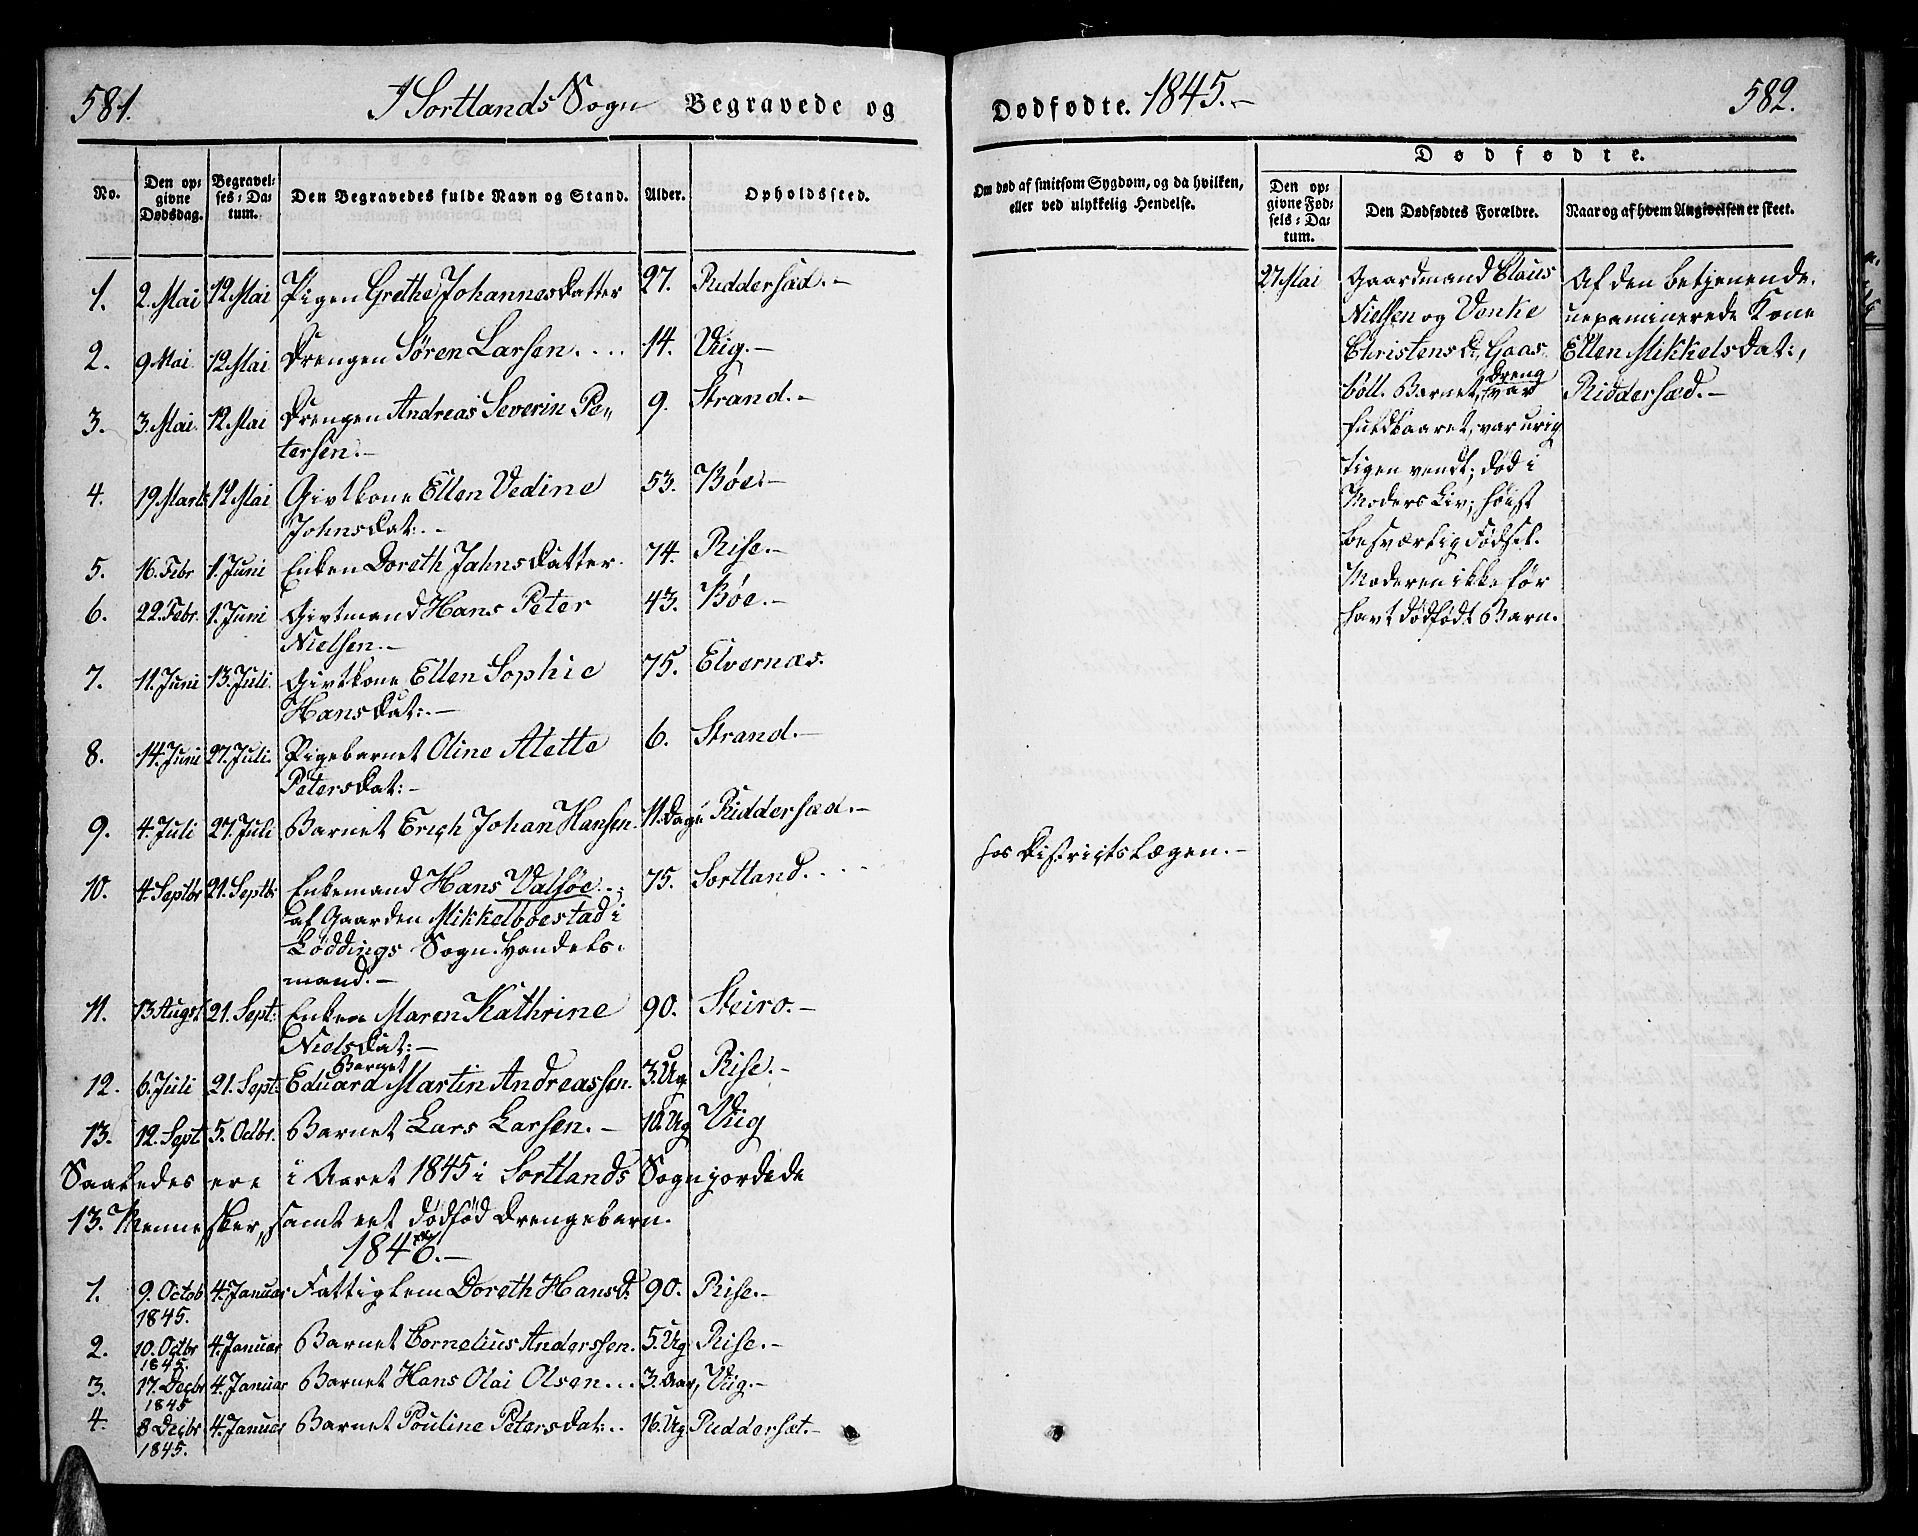 581.
I Sortlands Sogn Begravede og
No.
Den opgivne Dødsdag.
Begravelses-Datum.
Den Begravedes fulde Navn og Stand.
Alder.
Opholdssted.
1. 2. Mai 12 Mai Pigen Grethe Johannesdatter 27. Riddersæd.-
2. 9 Mai 12 Mai Drengen Søren Larsen.... 14. Viig.-
3. 3. Mai 12 Mai Drengen Andreas Severin Pe-
tersen.- 9. Strand.-
4. 19 Marts 12 Mai Givtkone Ellen Vedine 53. Bøe.-
Johnsdat:.-
5. 16. Febr 1. Juni Enken Doreth Jahnsdatter. 74. Rise.-
6. 22. Febr. 1. Juni Givtmand Hans Peter 43. Bøe.-
Nielsen.-
7. 11. Juni 13. Juli. Givtkone Ellen Sophie 75. Elvernæs.
Hansdat:.-
8. 14. Juni 27. Juli. Pigebarnet Oline Alette 6. Strand.-
Petersdat:-
9. 4. Juli 27. Juli Barnet Erich Johan Hansen. 11. Dage Riddersæd.-
10. 4. Septbr 21. Septb: Enkemand Hans Valsøe.. 75. Sortland....
af Gaarden Mikkelboestad i
Løddings Sogn. Handels-
mand.-
11. 13 Augst 21. Sept: Enken Maren Kathrine 90. Steiro.-
Nielsdat:-
Barnet
12. 6. Juli 21. Sept: Eduard Martin Andreassen. 3. Ug Rise.-
13. 12. Sept 5. Octbr. Barnet Lars Larsen.- 10. Ug Viig
Saaledes ere i Aaret 1845 i Sortlands Sogn jordede
13. Mennesker, samt eet dødfød Drengebarn.
1846.-
1. 9. Octob 4. Januar Fattiglem Doreth Hansd: 90. Rise.-
1845.
2. 10. Octbr 4. Januar Barnet Cornelius Anderssen. 5. Ug Rise.-
1845.
3. 17. Decbr 4. Januar Barnet Hans Olai Olsen... 3. Aar, Viig.-
1845
4. 8 Decbr 4. Januar Barnet Pouline Petersdat:.. 16. Ug Riddersæt.-
1845.
Dødfødte. 1845.-
582.
Om død af smitsom Sygdom, og da hvilken,
eller ved ulykkelig Hendelse.
Dødfødte.
Den opgivne Fødsels-Datum.
Den Dødfødtes Forældre.
Naar og af hvem Angivelsen er skeet.
27 Mai Gaardmand Claus Af den betjenende,
Nielsen og Venke uexaminerede Kone
Christensd:, Gaas- Ellen Mikkelsdat:,
Dreng
böll. Barnet, var Riddersæd.-
fuldbaaret, var urig
tigen vendt; død i
Moders Liv; höist
besværlig Födsel.
Moderen ikke før
havt dödfödt Barn.
hos Districtslægen.-